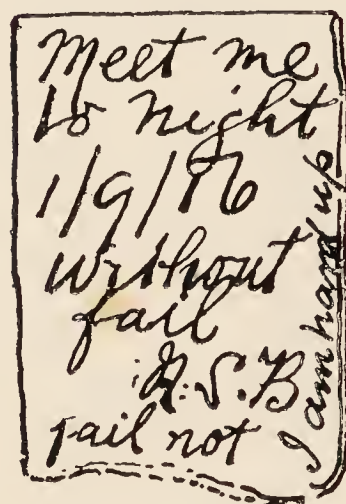 Meet me
to night
1/9/86
without
fail
G. S. B
fail not
I am hard up